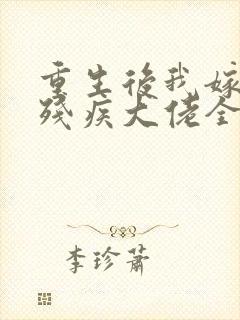 重生後我嫁
殘疾大佬全
李珍蕭